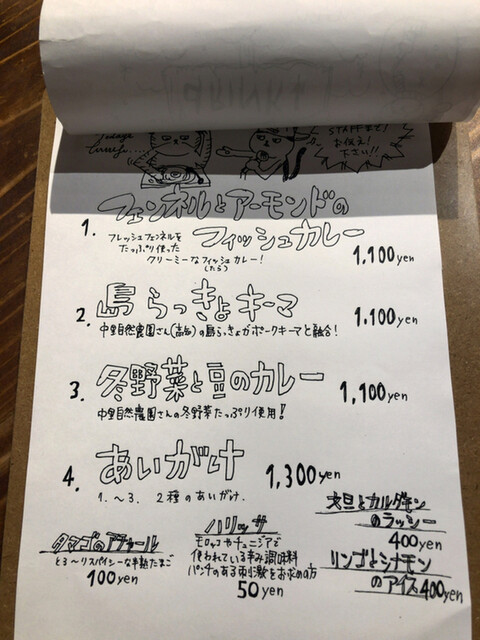 Today's
Curry....
STAFFまで!
お伝え!
下さい!!
フェンネルとアーモンドの
1. フィッシュカレー
フレッシュフェンネルを
たっぷり使った
クリーミーなフィッシュカレー!
(たら)
1,100yen
2. 島らっきょキーマ 1,100yen
中里自然農園さん(高知)の島らっきょがポークキーマと融合!
3. 冬野菜と豆のカレー 1,100yen
中里自然農園さんの冬野菜たっぷり使用!
4. あいがけ 1,300yen
1.~3. 2種のあいがけ.
タマゴのアチャール
とろ~りスパイシーな半熟たまご
100yen
ハリッサ
モロッコやチュニジアで
使われている辛み調味料
パンチのある刺激をお求めの方
50yen
文旦とカルダモン
のラッシー
400yen
リンゴとシナモン
のアイス400yen